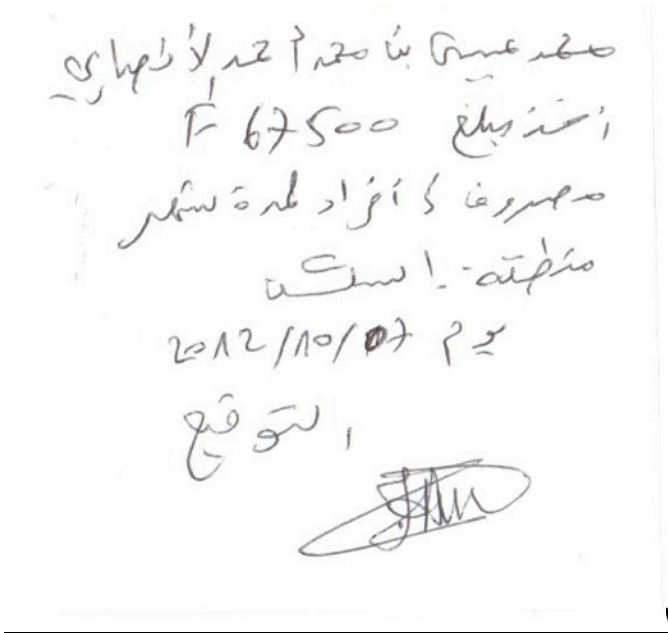 محمد عيسى بن محمد أحمد الأنصاري
أخذ مبلغ 67500 F
مصروفا أفراد لمدة شهر
منطقة
يوم 2012/10/07
التوقيع